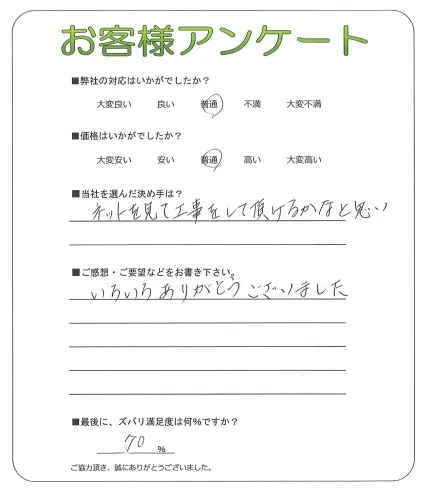 お客様アンケート
■弊社の対応はいかがでしたか?
大変良い 良い 普通 不満 大変不満
■価格はいかがでしたか?
大変安い 安い 普通 高い 大変高い
■当社を選んだ決め手は?
ネットを見て工事をして頂けるかなと思い
■ご感想・ご要望などをお書き下さい。
いろいろありがとうございました
■最後に、ズバリ満足度は何%ですか?
70 %
ご協力頂き、誠にありがとうございました。